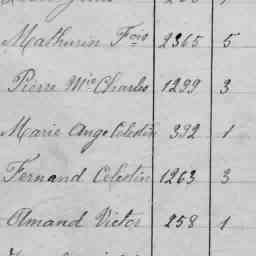 Mathurin Fois 2365 5
Pierre Mie Charles 1299 3
Marie Ange Celestin 392 1
Fernand Celestin 1263 3
Amand Victor 258 1